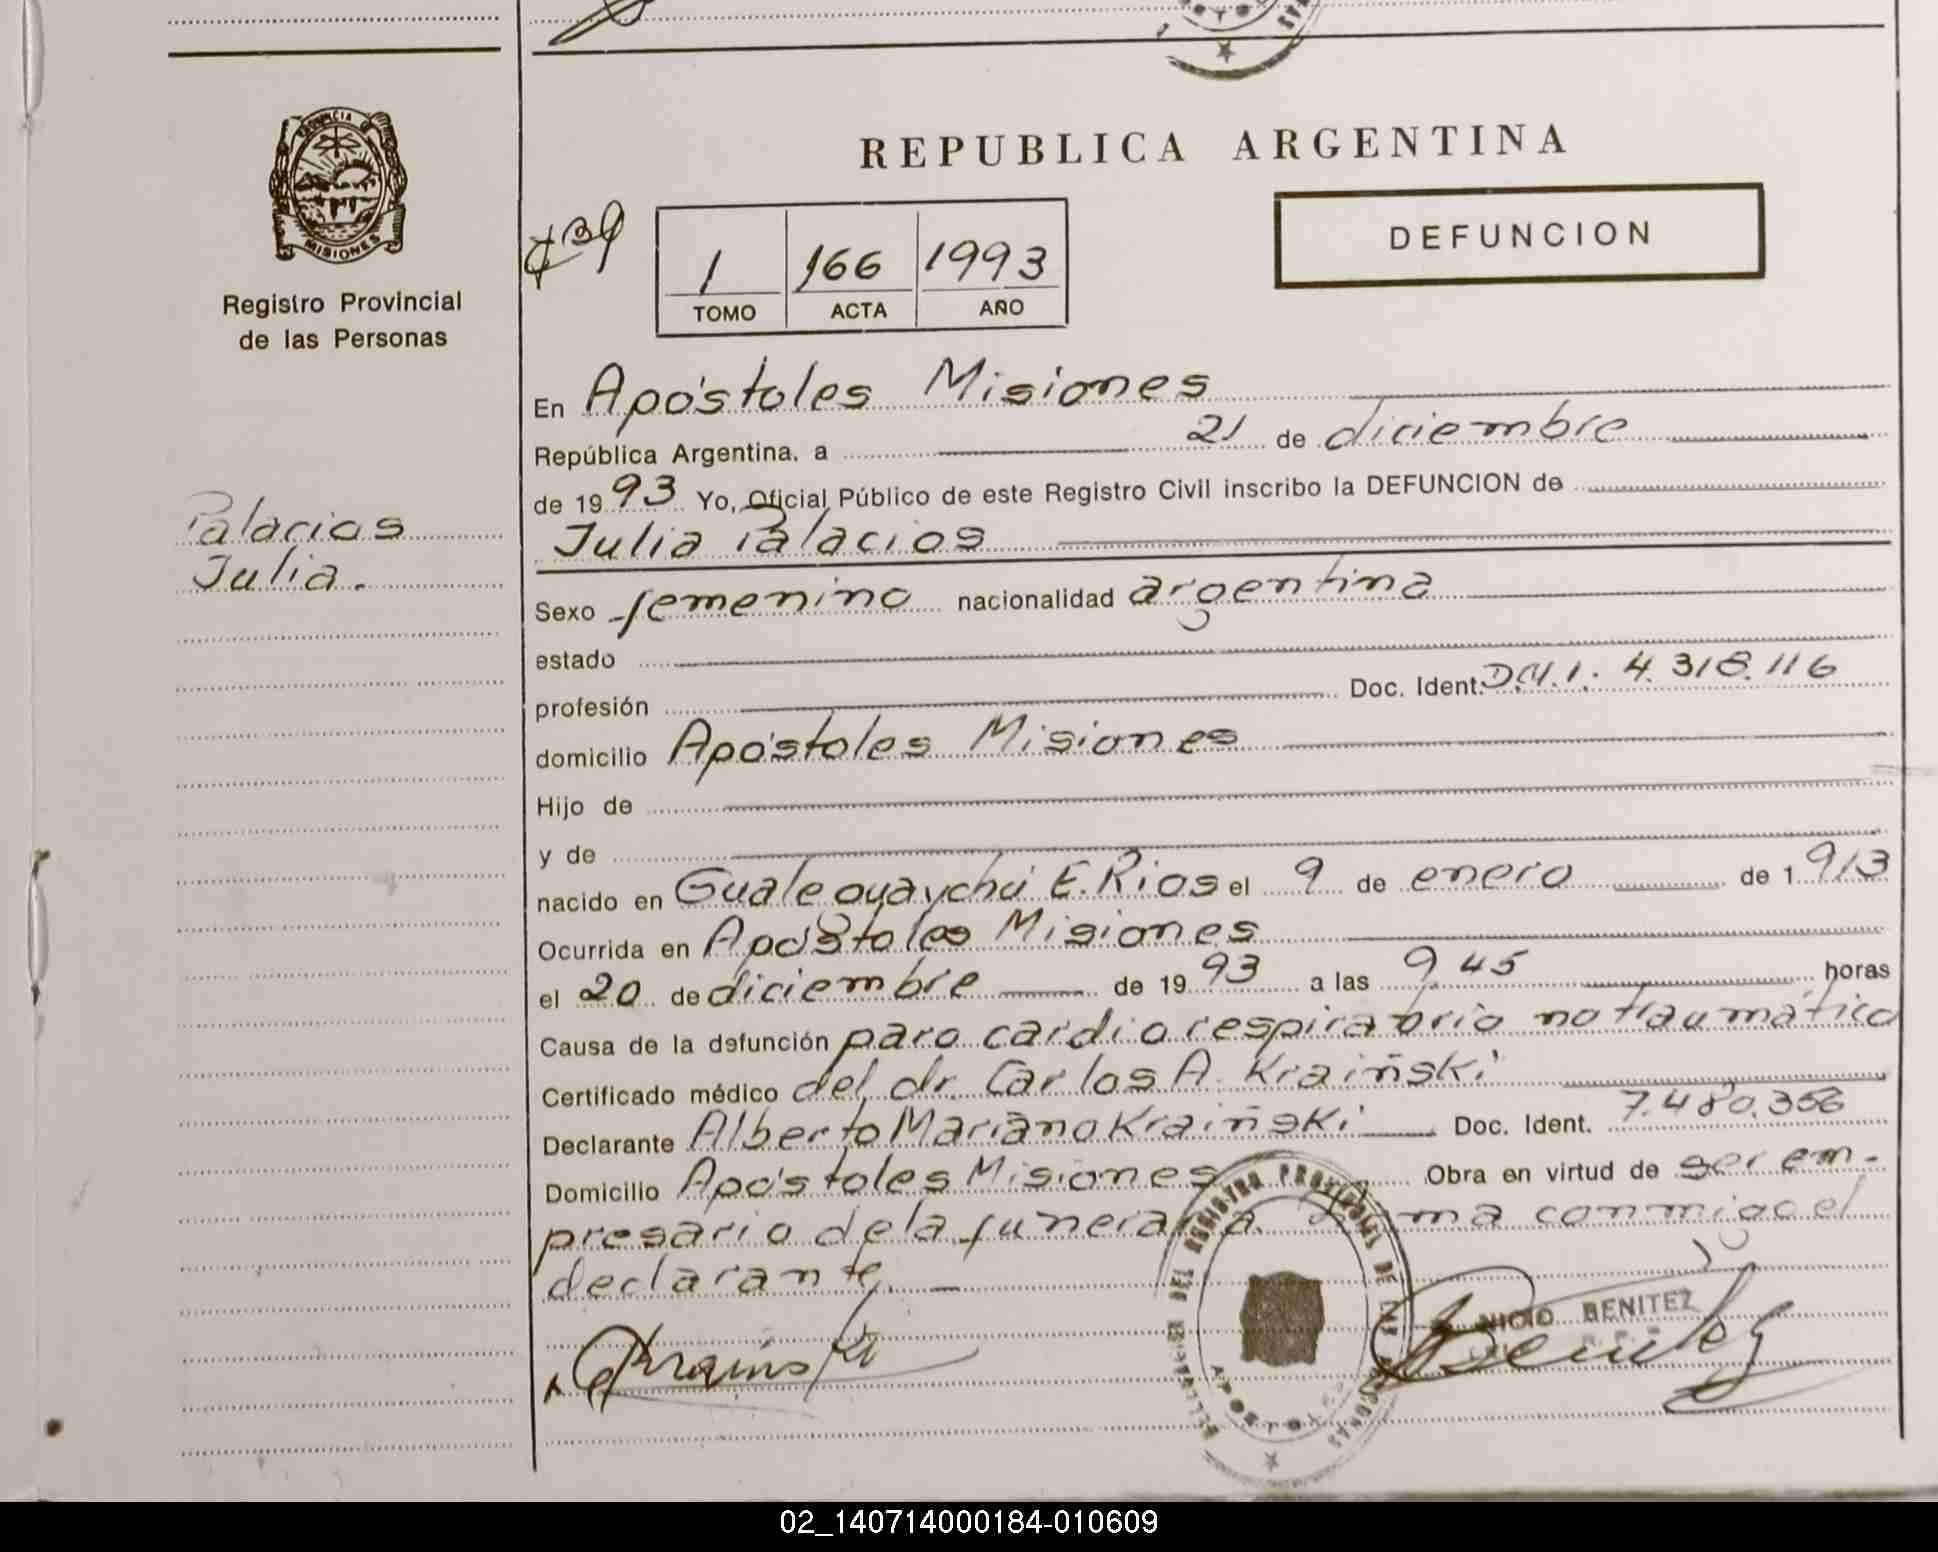 REPUBLICA ARGENTINA
PROVINCIA DE
MISIONES
Registro Provincial
de las Personas
1 166 1993
TOMO ACTA AÑO
DEFUNCION
Palacios
Julia.
En Apóstoles Misiones
República Argentina, a 21 de diciembre
de 1993 Yo, Oficial Público de este Registro Civil inscribo la DEFUNCION de
Julia Palacios
Sexo femenino nacionalidad argentina
estado
profesión Doc. Ident. D.N.I. 4.318.116
domicilio Apóstoles Misiones
Hijo de
y de
nacido en Gualeguaychú E. Rios el 9 de enero de 1913
Ocurrida en Apóstoles Misiones
el 20 de diciembre de 1993 a las 9,45 horas
Causa de la defunción paro cardio respiratorio no traumático
Certificado médico del dr. Carlos A. Kraiñski
Declarante Alberto Mariano Kraiñski Doc. Ident. 7.480.356
Domicilio Apóstoles Misiones Obra en virtud de ser em-
presario de la funeraria. Firma conmigo el
declarante. —
Krainski
REGISTRO PROVINCIAL DE LAS PERSONAS
APOSTOLES
NICIO BENITEZ
Benitez
02_140714000184-010609